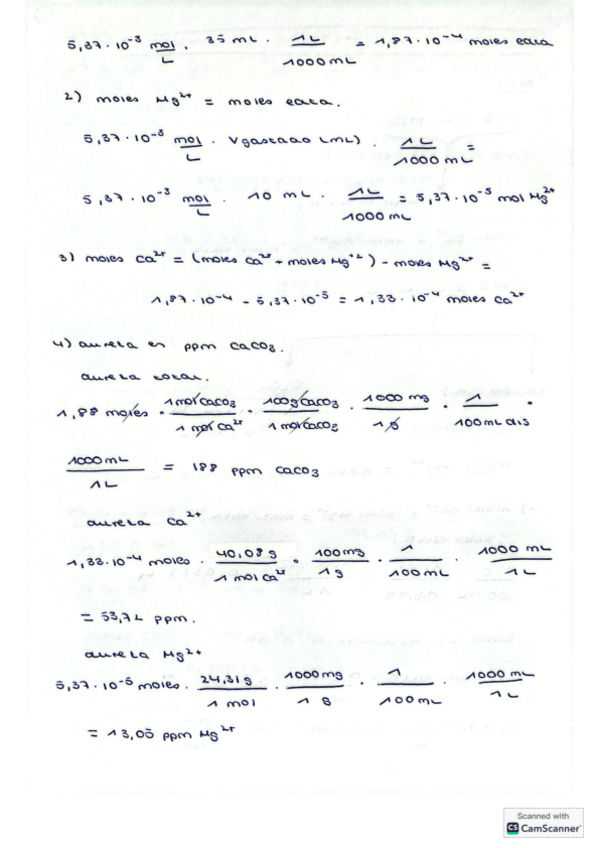 5,37·10⁻³ mol/L · 35 mL · 1L/1000mL = 1,87·10⁻⁴ moles edta
2) moles Mg²⁺ = moles edta.
5,37·10⁻³ mol/L · Vgastado (mL) · 1L/1000 mL =
5,37·10⁻³ mol/L · 10 mL · 1L/1000mL = 5,37·10⁻⁵ mol Mg²⁺
3) moles Ca²⁺ = (moles Ca²⁺ + moles Mg⁺²) - moles Mg²⁺ =
1,87·10⁻⁴ - 5,37·10⁻⁵ = 1,33·10⁻⁴ moles Ca²⁺
4) dureza en ppm CaCO₃.
dureza total.
1,88 moles · 1 mol CaCO₃/1 mol Ca²⁺ · 100g CaCO₃/1 mol CaCO₃ · 1000 mg/1g · 1/100mL dis ·
1000mL/1L = 188 ppm CaCO₃
dureza Ca²⁺
1,33·10⁻⁴ moles · 40,08 g/1 mol Ca²⁺ · 100mg/1g · 1/100mL · 1000 mL/1L
= 53,72 ppm.
dureza Mg²⁺
5,37·10⁻⁵ moles · 24,31g/1 mol · 1000mg/1g · 1/100mL · 1000 mL/1L
= 13,05 ppm Mg²⁺
Scanned with
CS CamScanner